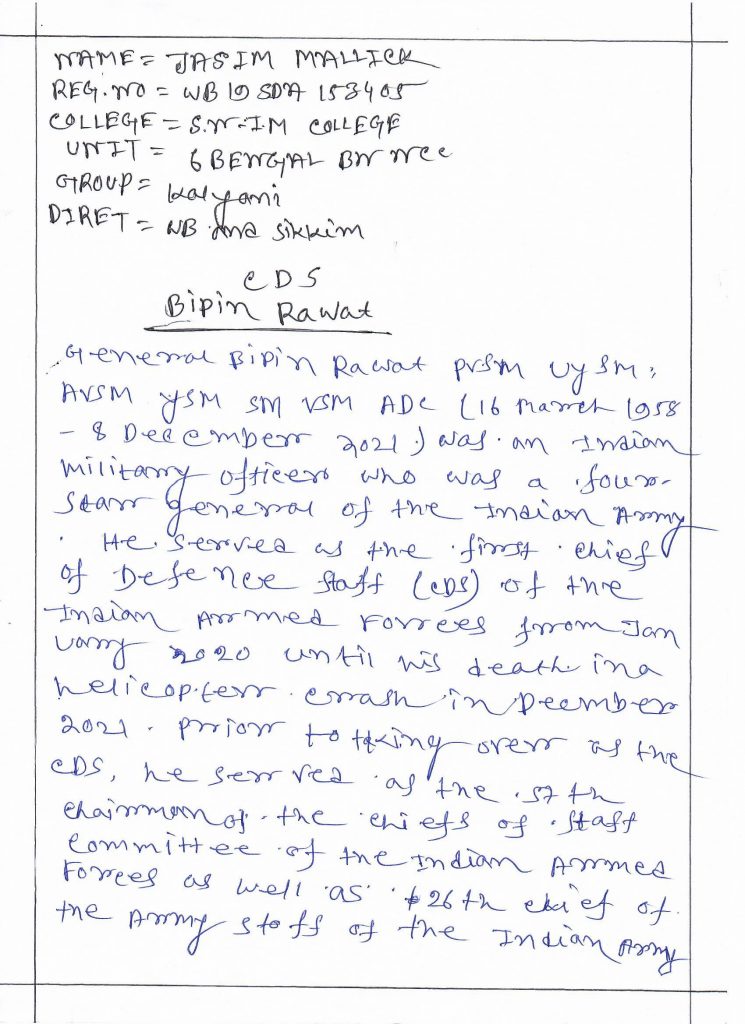 NAME = JASIM MALLICK
REG. NO = WB 19 SDA 153405
COLLEGE = S.N.I.M COLLEGE
UNIT = 6 BENGAL BN NCC
GROUP = Kalyani
DIRET = WB and Sikkim
CDS
Bipin Rawat
General Bipin Rawat PVSM UYSM,
AVSM YSM SM VSM ADC (16 March 1958
- 8 December 2021) was an Indian
military officer who was a four-
star general of the Indian Army
. He served as the first chief
of Defence staff (CDS) of the
Indian Armed Forces from Jan
uary 2020 until his death in a
helicopter crash in Deember
2021. prior to taking over as the
CDS, he served as the 57th
Chairman of the chiefs of staff
committee of the Indian Armed
Forces as well as 26th chief of
the Army staff of the Indian Army